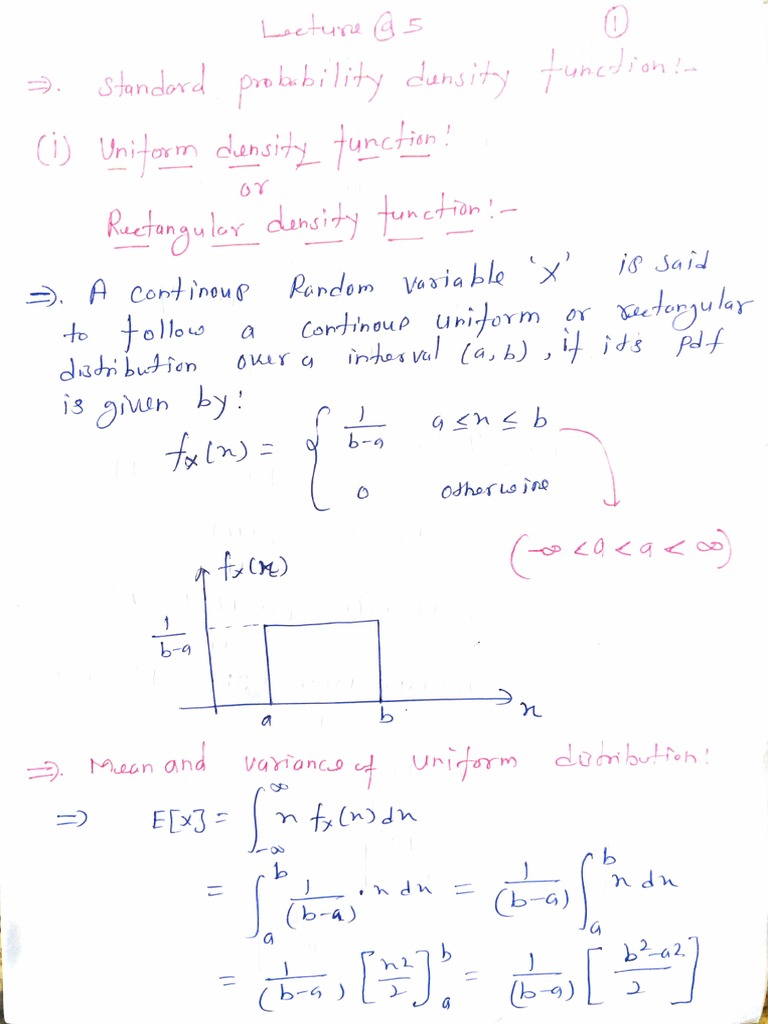 Lecture @ 5 ①
⇒. Standard probability density function:-
(i) Uniform density function!
or
Rectangular density function:-
⇒. A continous Random variable 'X' is said
to follow a continous uniform or rectangular
distribution over a interval (a, b), if its pdf
is given by!
fx(x) = { 1/(b-a) a ≤ x ≤ b
0 otherwise
(-∞ < a < a < ∞)
fx(x)
1/(b-a)
a b x
⇒. Mean and variance of uniform distribution!
⇒ E[X] = ∫_{-∞}^{∞} x fx(x) dx
= ∫_a^b 1/(b-a) · x dx = 1/(b-a) ∫_a^b x dx
= 1/(b-a) [x²/2]_a^b = 1/(b-a) [(b²-a²)/2]